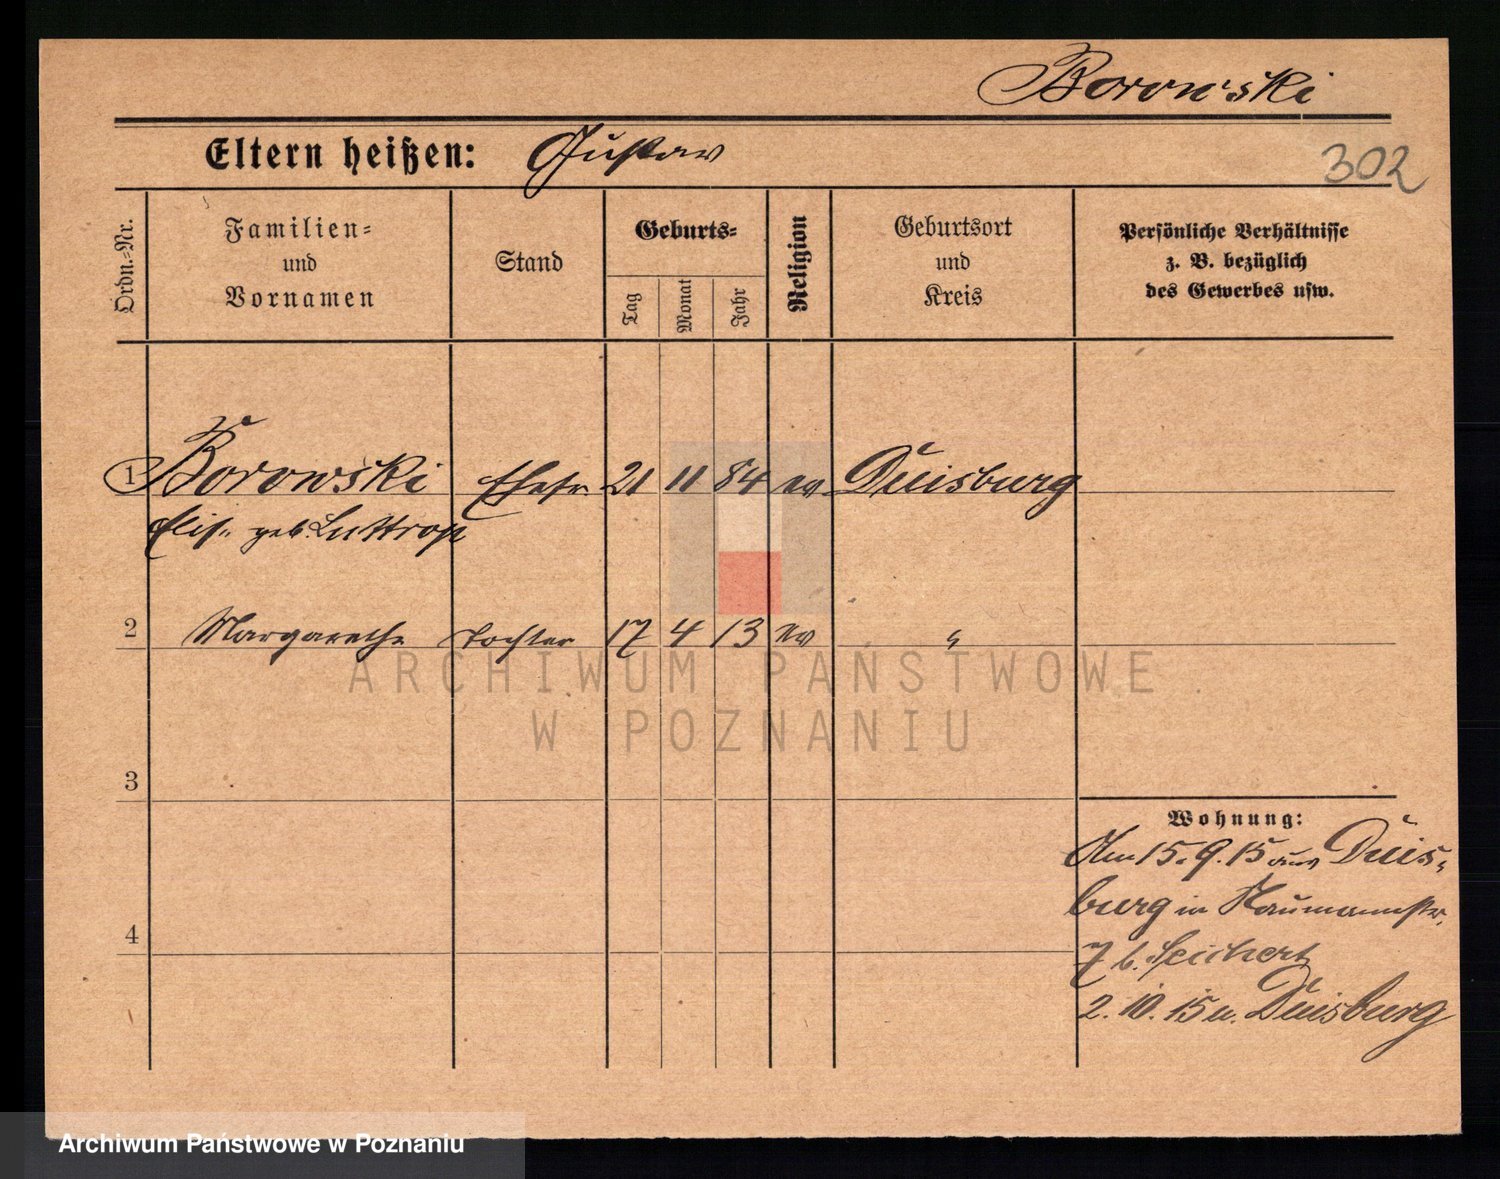 Borowski
Eltern heißen: Gustav
302
Ordn.-Nr.
Familien-
und
Vornamen
Stand
Geburts-
Tag
Monat
Jahr
Religion
Geburtsort
und
Kreis
Persönliche Verhältnisse
z. B. bezüglich
des Gewerbes usw.
1 Borowski Ehefr. 21 11 84 ev Duisburg
Elis. geb. Luttrop
2 Margarethe Tochter 17 4 13 ev "
ARCHIWUM PAŃSTWOWE
W POZNANIU
3
Wohnung:
Am 15.9.15 aus Duis-
burg in Naumannstr.
4
7 b. Seichert
2.10.15 n. Duisburg
Archiwum Państwowe w Poznaniu